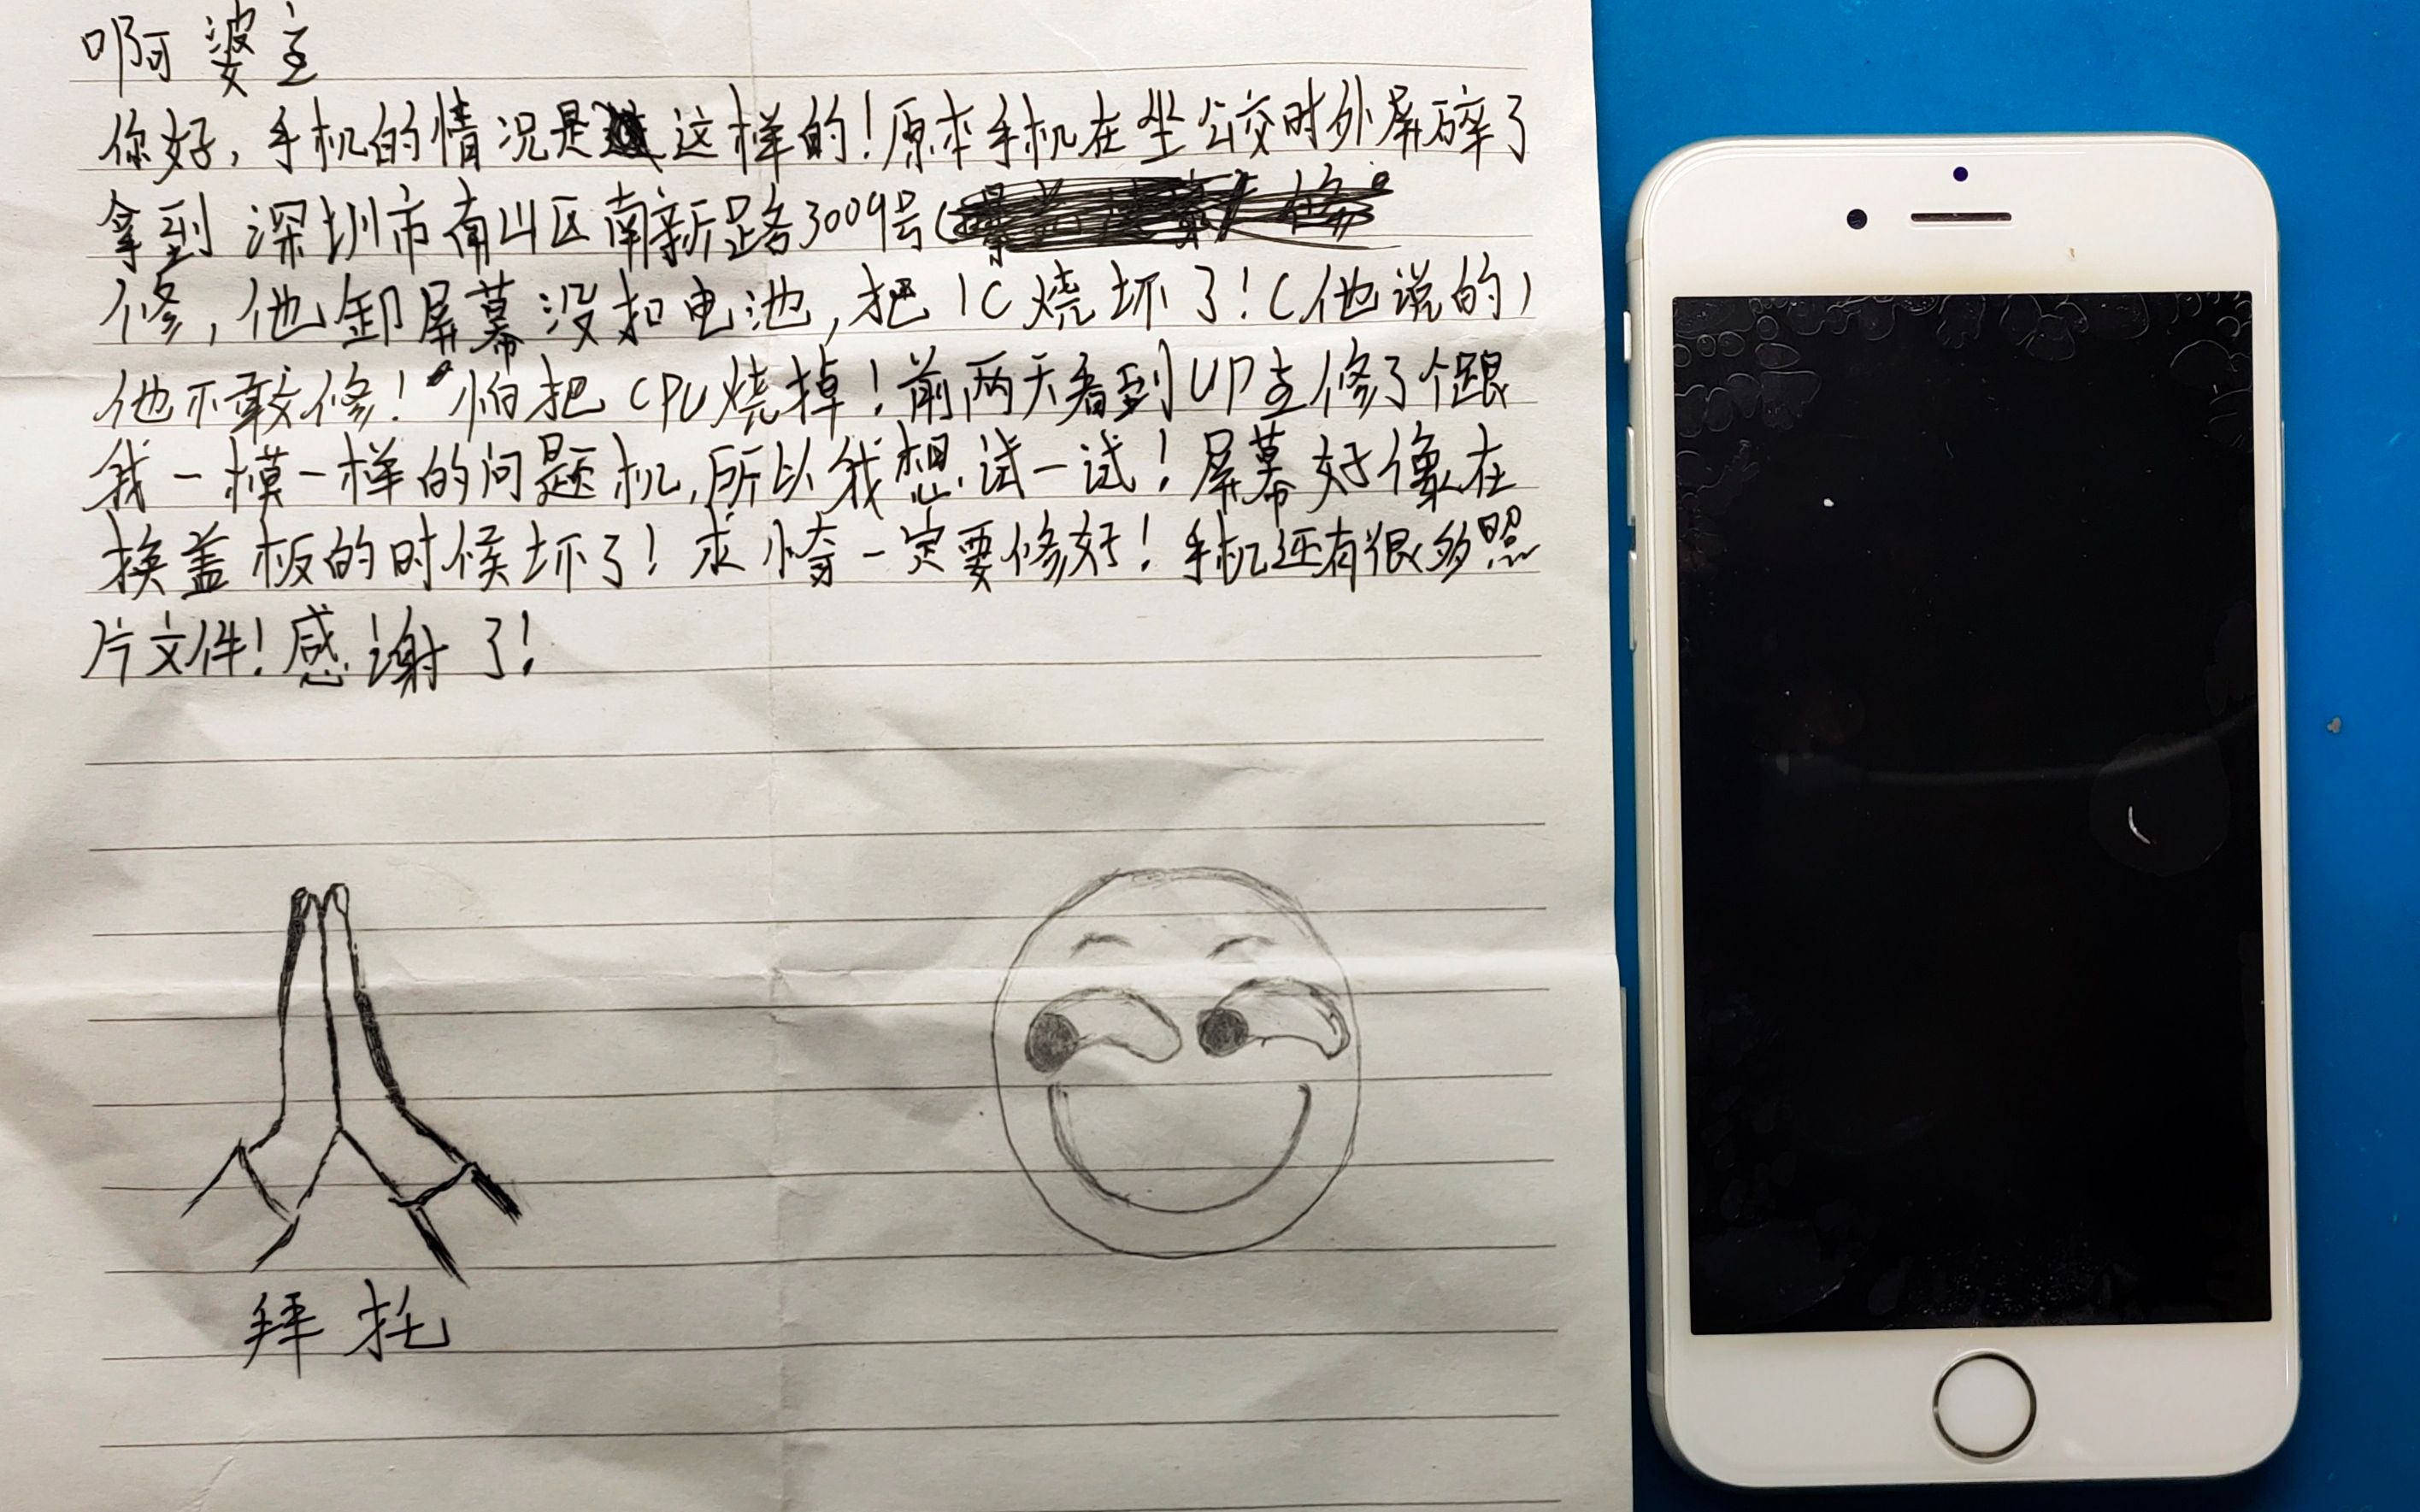 啊婆主
你好,手机的情况是这样的!原本手机在坐公交时外屏碎了
拿到深圳市南山区南新路3009号(
修,他卸屏幕没扣电池,把IC烧坏了!(他说的)
他不敢修!怕把CPU烧掉!前两天看到UP主修了个跟
我一模一样的问题机,所以我想试一试!屏幕好像在
换盖板的时候坏了!求一定要修好!手机还有很多照
片文件!感谢了!
拜托